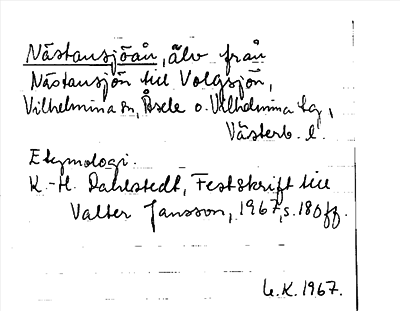 Nästansjöån, älv från
Nästansjön till Volgsjön,
Vilhelmina sn, Åsele o. Vilhelmina lag,
Västerb. l.
Etymologi.
K.-H. Dahlstedt, Festskrift till
Valter Jansson, 1967, s. 180 ff.
L.K. 1967.